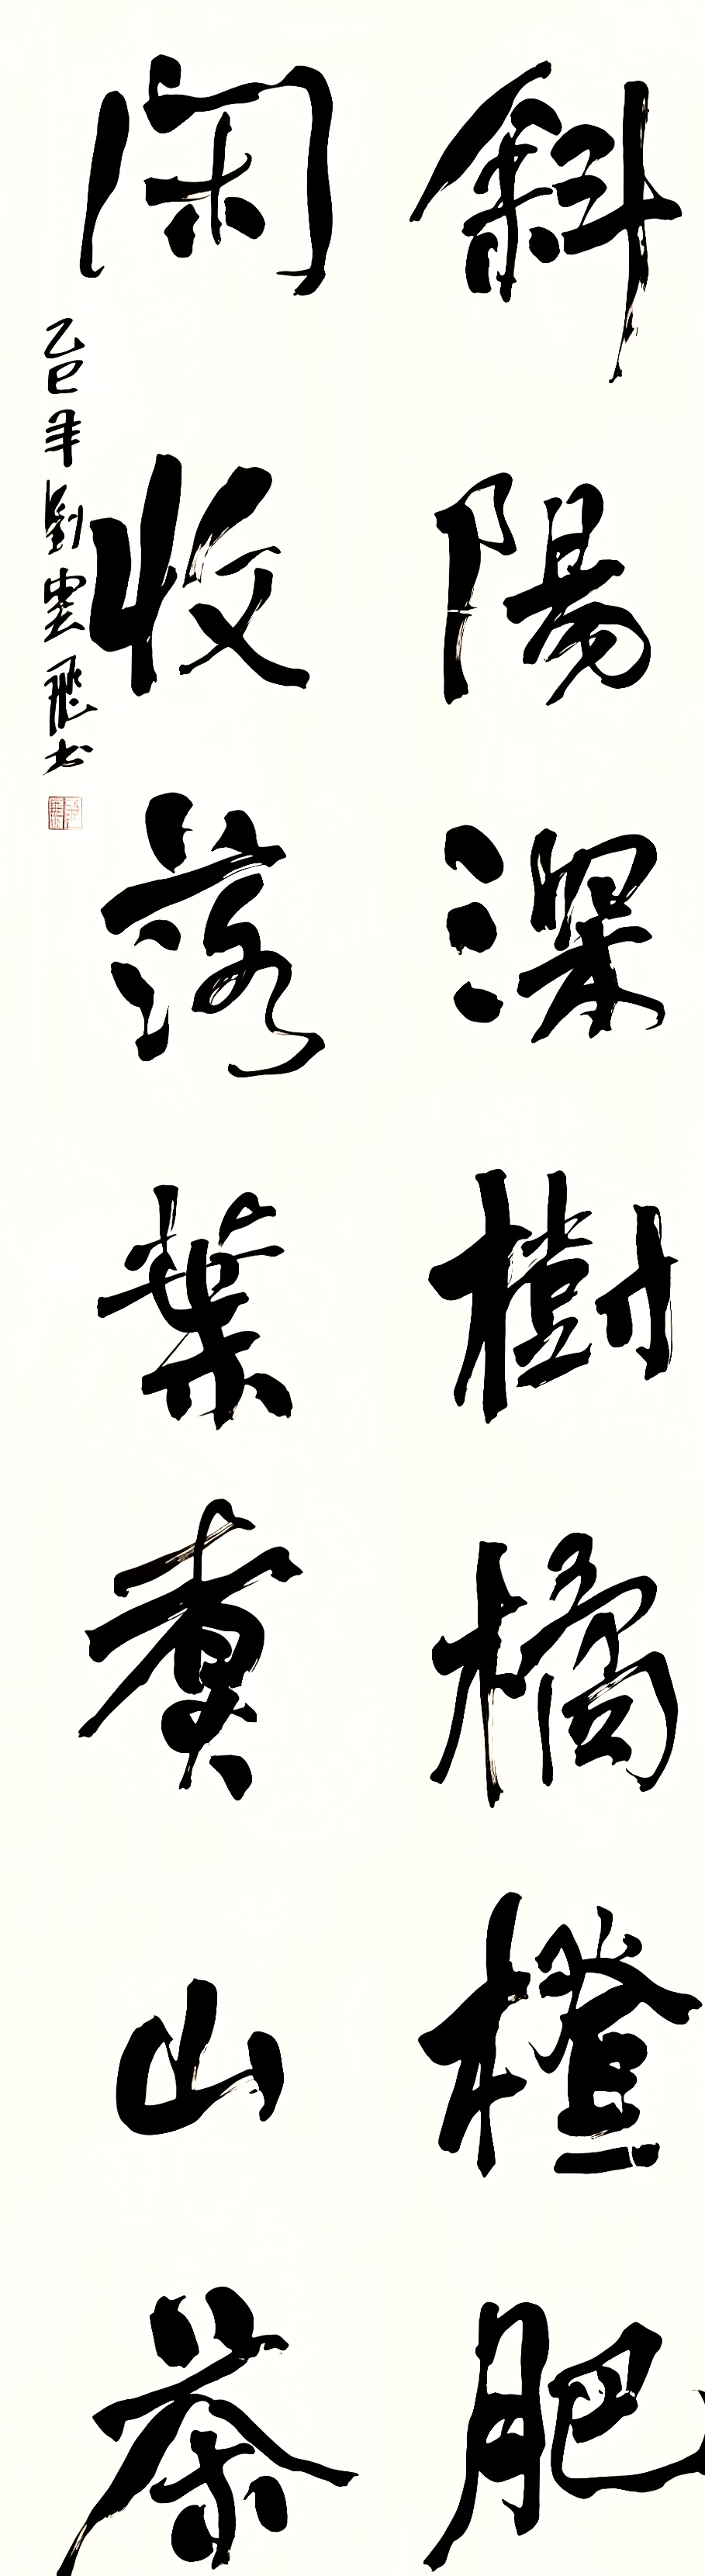 斜陽深樹橘橙肥
闲收落葉煮山茶
乙巳年劉雲飛书